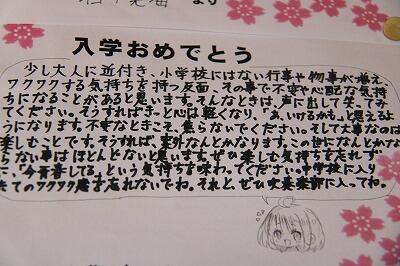 より
入学おめでとう
少し大人に近付き、小学校にはない行事や物事が増え、
ワクワクする気持ちを持つ反面、その事で不安や心配な気持
ちになることがあると思います。そんなときは、声に出して笑ってみ
てください。そうすればきっと心は軽くなり、「あ、いけるかも」と思えるよ
うになります。不安なときこそ、焦らないでください。そして大事なのは
楽しむことです。そうすれば、案外なんとかなります。この世になんとかな
らない事はほとんどないと思います。ぜひ楽しむ気持ちを忘れず
に、「今青春してる」という気持ちを味わってください。中学校に入り
たてのワクワク感を忘れないでね。それと、ぜひ吹奏楽部に入ってね。